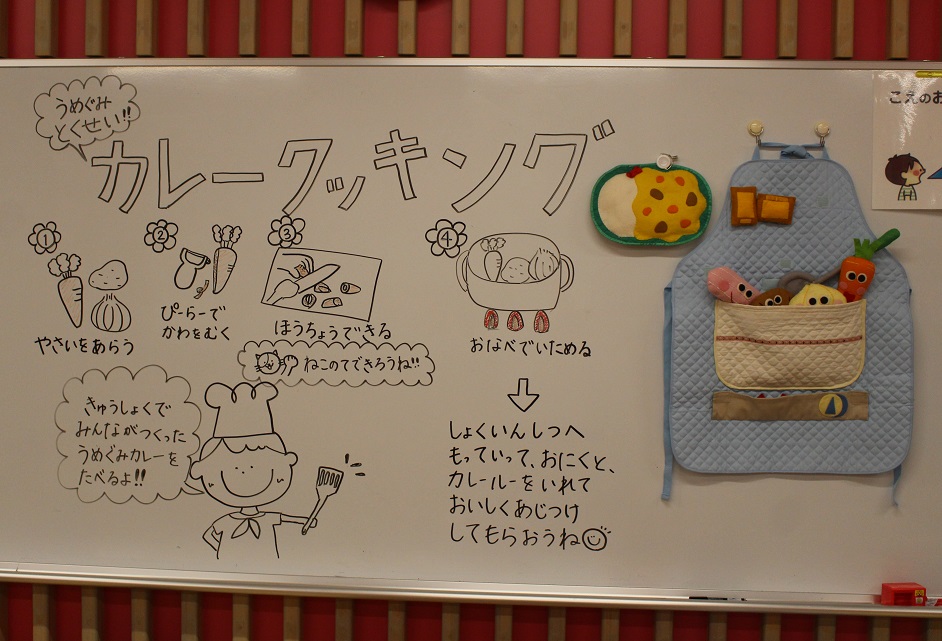 うめぐみ
とくせい!!
カレークッキング
①
やさいをあらう
②
ぴーらーで
かわをむく
③
ほうちょうできる
ねこのてできろうね!!
④
おなべでいためる
しょくいんしつへ
もっていって、おにくと、
カレールーをいれて
おいしくあじつけ
してもらおうね
きゅうしょくで
みんながつくった
うめぐみカレーを
たべるよ!!
こえのお